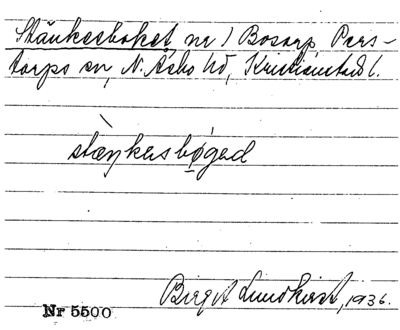 Stänkesboket, nr 1 Bosarp, Pers-
torps sn, N. Åsbo hd, Kristianstads l.
stæŋkesbøged
Birgit Lundkvist, 1936.
Nr 5500